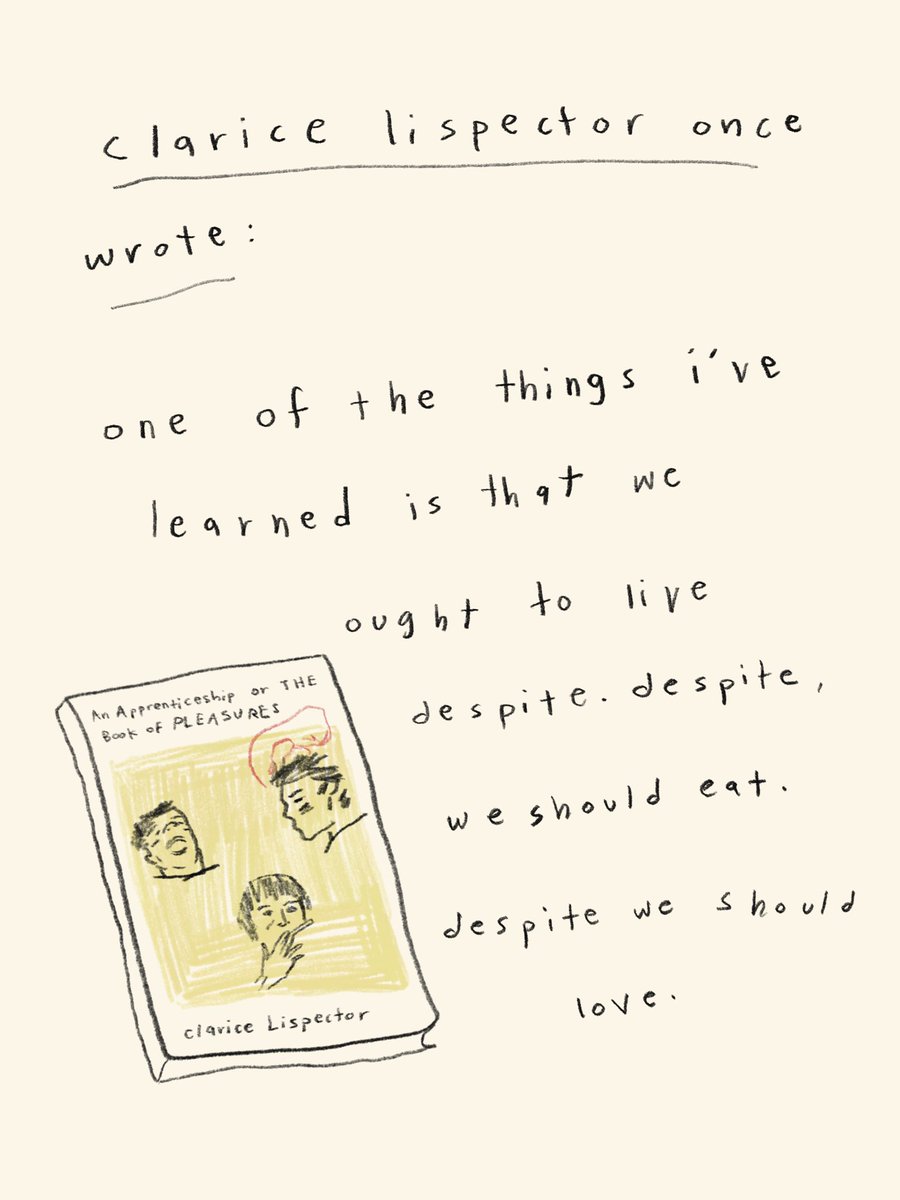 clarice lispector once
wrote:
one of the things i've
learned is that we
ought to live
despite. despite,
we should eat.
despite we should
love.
An Apprenticeship or THE
Book of PLEASURES
clarice Lispector